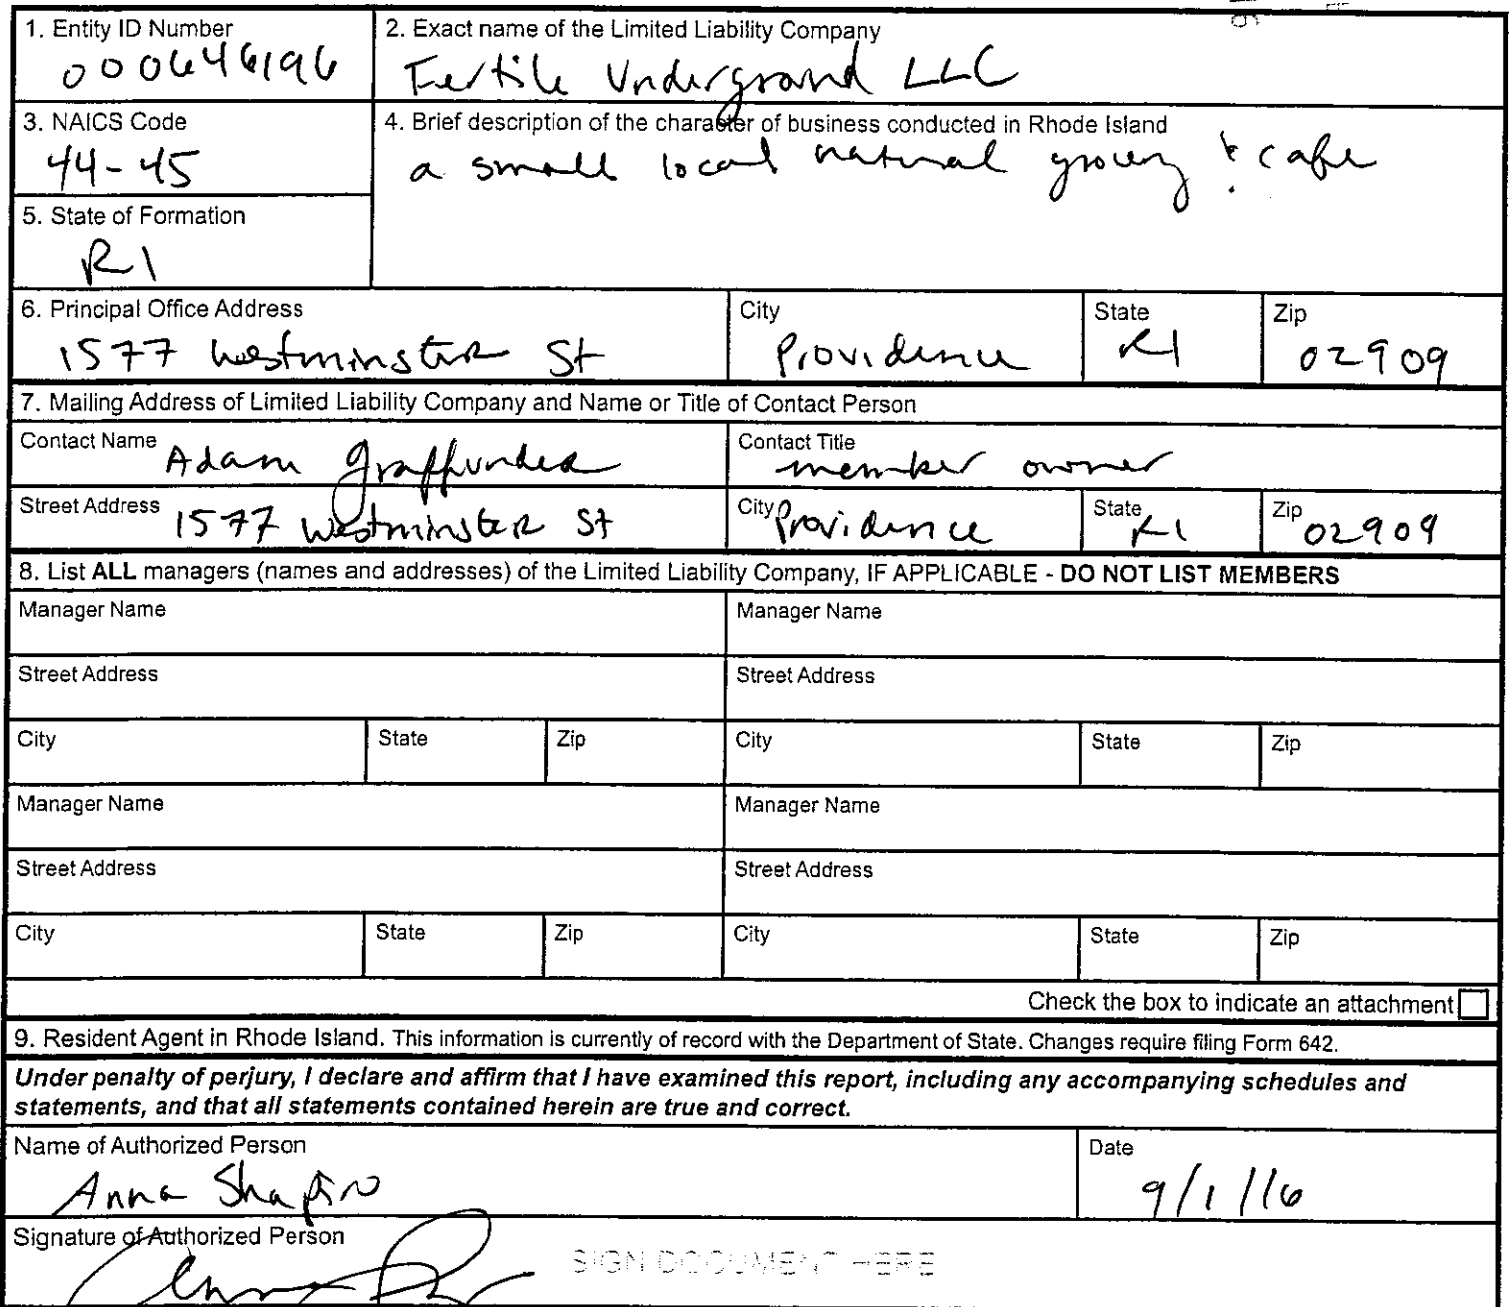 1. Entity ID Number
000646196
2. Exact name of the Limited Liability Company
Fertile Underground LLC
3. NAICS Code
44-45
4. Brief description of the character of business conducted in Rhode Island
a small local natural grocery & cafe
5. State of Formation
RI
6. Principal Office Address
1577 Westminster St
City
Providence
State
RI
Zip
02909
7. Mailing Address of Limited Liability Company and Name or Title of Contact Person
Contact Name Adam Graffunder
Contact Title
member owner
Street Address 1577 Westminster St
City Providence
State RI
Zip 02909
8. List ALL managers (names and addresses) of the Limited Liability Company, IF APPLICABLE - DO NOT LIST MEMBERS
Manager Name
Manager Name
Street Address
Street Address
City State Zip City State Zip
Manager Name
Manager Name
Street Address
Street Address
City State Zip City State Zip
Check the box to indicate an attachment
9. Resident Agent in Rhode Island. This information is currently of record with the Department of State. Changes require filing Form 642.
Under penalty of perjury, I declare and affirm that I have examined this report, including any accompanying schedules and
statements, and that all statements contained herein are true and correct.
Name of Authorized Person
Anna Shapiro
Date
9/1/16
Signature of Authorized Person
SIGN DOCUMENT HERE